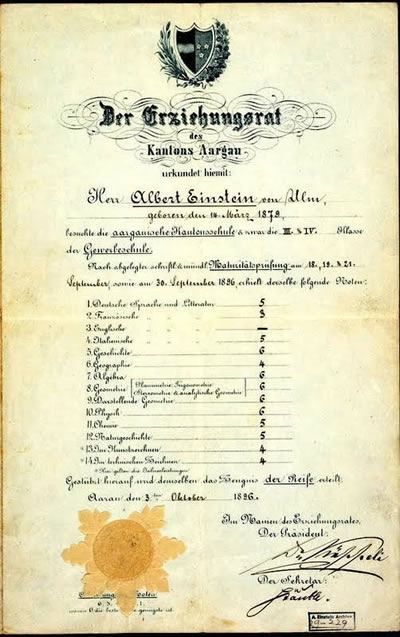 Der Erziehungsrat
des
Kantons Aargau
urkundet hiemit:
Herr Albert Einstein von Ulm,
geboren den 14. März 1879,
besuchte die aargauische Kantonsschule & zwar die III. & IV. Klasse
der Gewerbeschule.
Nach abgelegter schriftl. & mündl. Maturitätsprüfung am 18., 19. & 21.
September, sowie am 30. September 1896, erhielt derselbe folgende Noten:
1. Deutsche Sprache und Litteratur 5
2. Französische " " " 3
3. Englische " " " —
4. Italienische " " " 5
5. Geschichte 6
6. Geographie 4
7. Algebra 6
8. Geometrie Planimetrie, Trigonometrie 6
Stereometrie & analytische Geometrie
9. Darstellende Geometrie 6
10. Physik 6
11. Chemie 5
12. Naturgeschichte 5
* 13. Im Kunstzeichnen 4
* 14. Im technischen Zeichnen 4
* Hier gelten die Jahresleistungen.
Gestützt hierauf wird demselben das Zeugnis der Reife erteilt.
Aarau den 3ten Oktober 1896.
Im Namen des Erziehungsrates,
Der Präsident:
Der Sekretär:
Stäuble.
6. 5. 1.
A. Einstein Archive
29-229